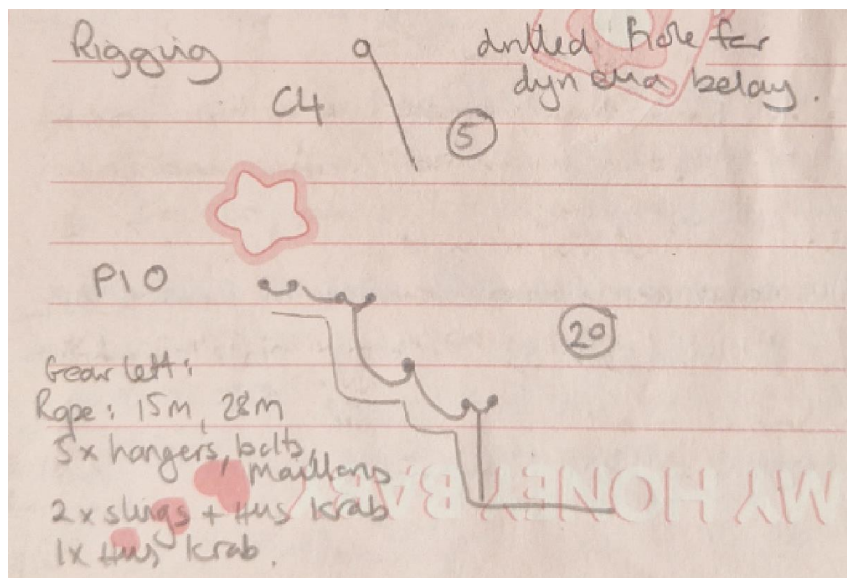 Rigging
drilled hole for
dynema belay.
C4
5
P10
20
Gear left:
Rope: 15m, 28m
5x hangers, bolts,
maillons
2 x slings + HMS krab
1x HMS krab.
MY HONEY BABY